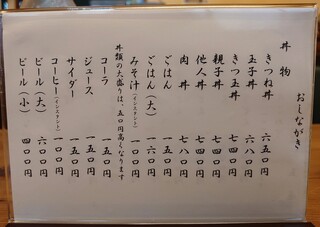 おしながき
丼物
きつね丼 六五〇円
玉子丼 六八〇円
きつ玉丼 七四〇円
親子丼 七四〇円
他人丼 七四〇円
肉丼 七八〇円
ごはん 一一〇円
ごはん(大) 一六〇円
みそ汁(インスタント) 一〇〇円
丼類の大盛りは、五〇円高くなります
コーラ 一五〇円
ジュース 一五〇円
サイダー 一五〇円
コーヒー(インスタント) 一〇〇円
ビール(大) 六〇〇円
ビール(小) 四〇〇円